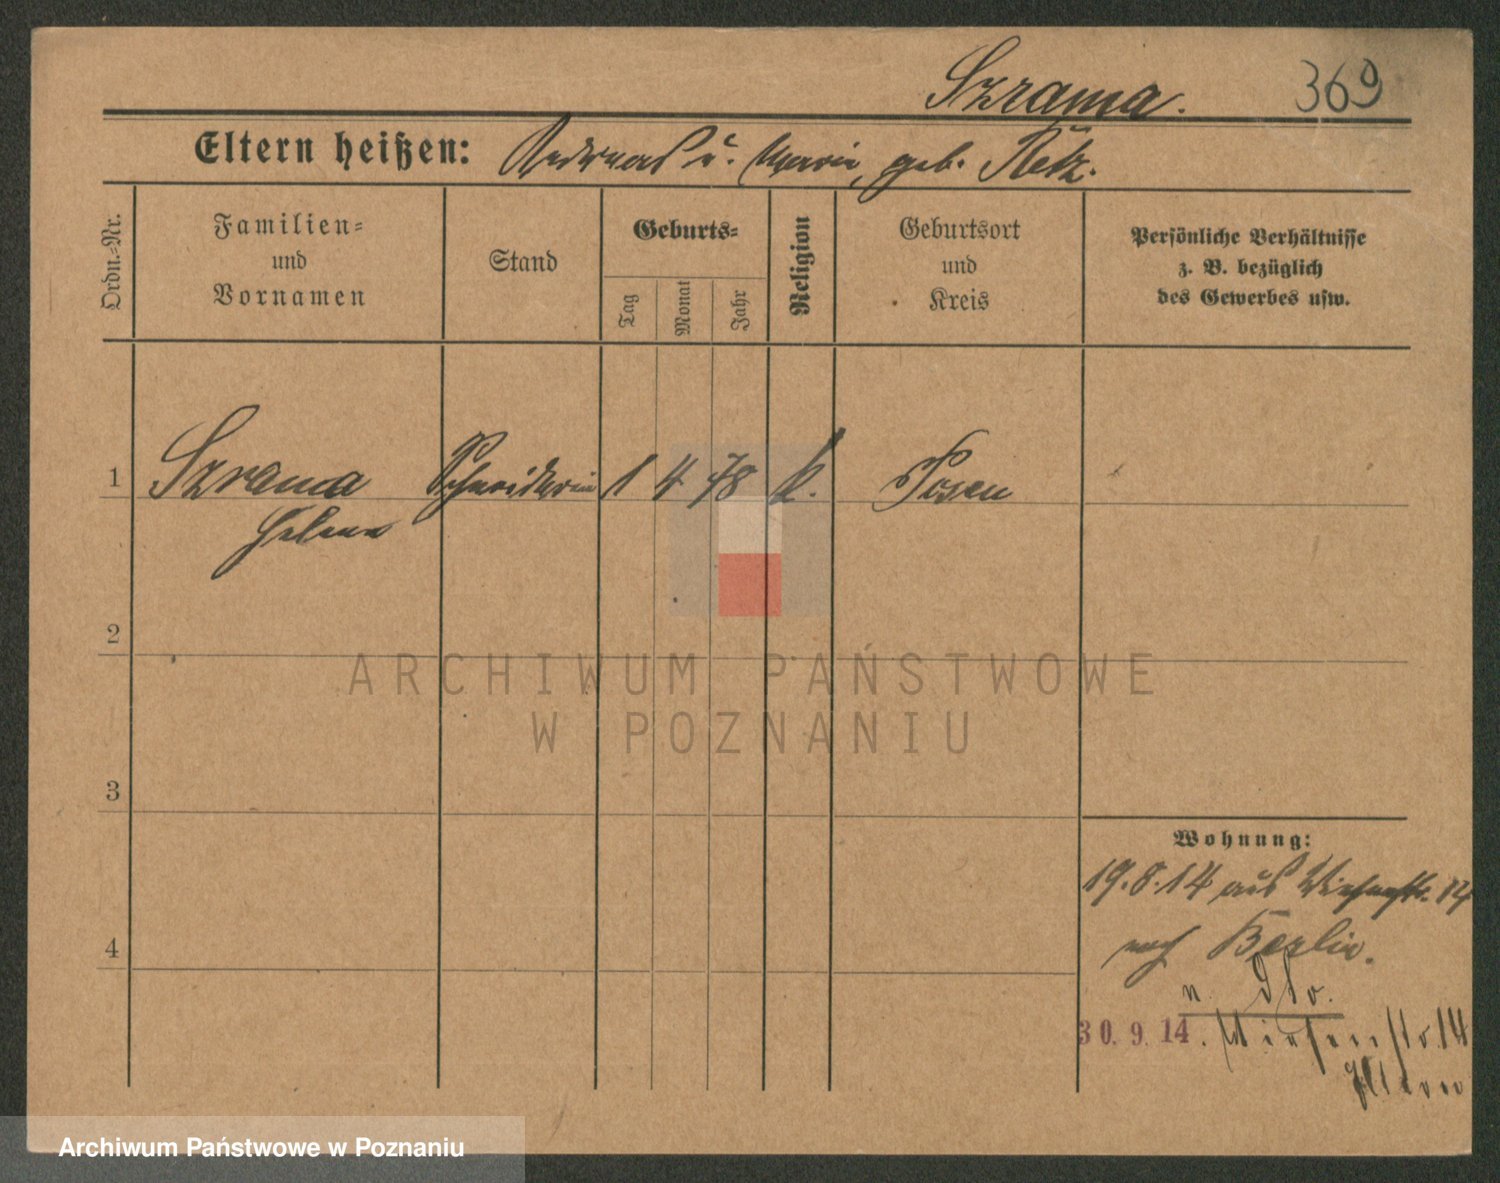 Szrama. 369
Eltern heißen: Andreas u. Marie, geb. Retz.
Ordn.=Nr.
Familien=
und
Vornamen
Stand
Geburts=
Tag
Monat
Jahr
Religion
Geburtsort
und
Kreis
Persönliche Verhältnisse
z. B. bezüglich
des Gewerbes usw.
1 Szrama Schneiderin 1 4 78 k. Posen
Helene
2
ARCHIWUM PAŃSTWOWE
W POZNANIU
3
Wohnung:
19.8.14 aus Wiesenstr. 14
4
nach Berlin.
v. dto.
30. 9. 14. Wiesenstr. 14
Archiwum Państwowe w Poznaniu